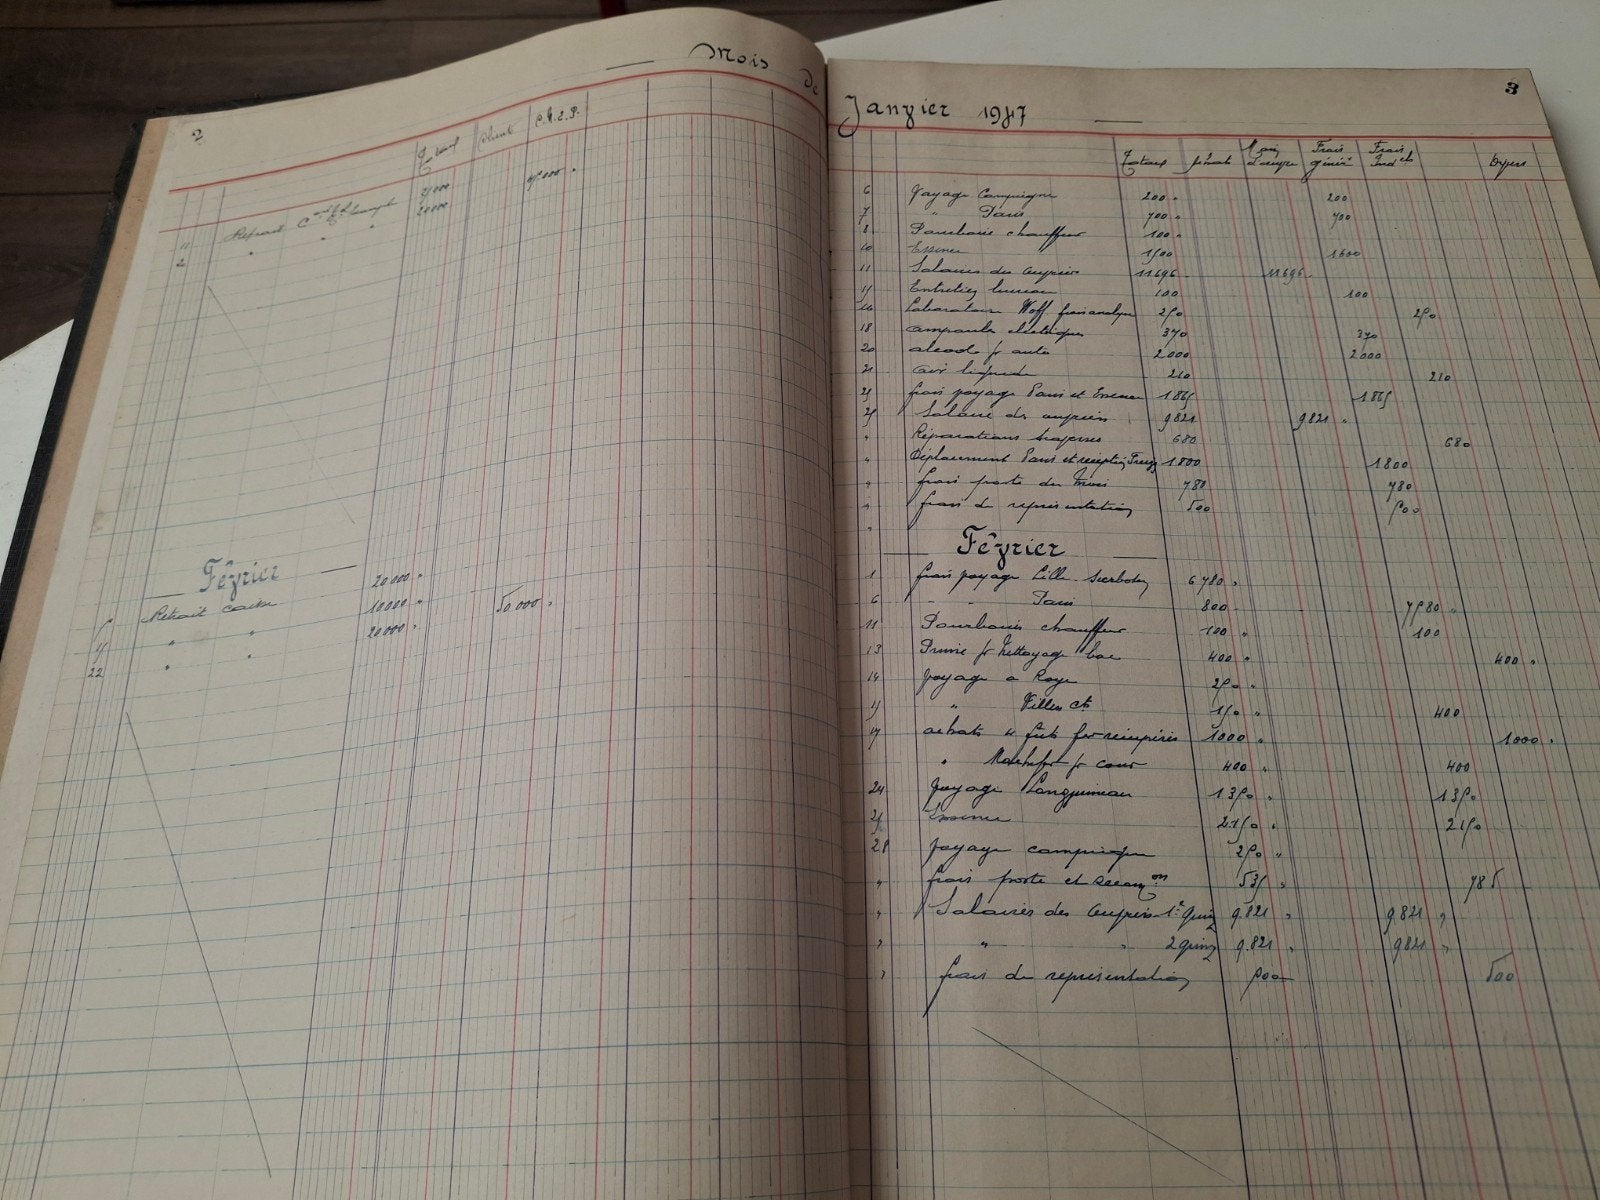 2
Mois de
Totaux C.C.P.
11 Retrait 20000
2 " " 20000
Février
Retrait caisse 20000 "
" " 10000 " 50000 "
22 " " 20000 "
3
Janvier 1947
Totaux Achat Main d'œuvre Frais généx Frais Ind els Divers
6 Voyage Compiègne 200 " 200
7 " Paris 700 " 700
8 Pourboire chauffeur 100 "
10 Essence 1500 1600
11 Salaires des ouvriers 11696 11696
15 Entretien bureau 100 100
16 Laboratoire Wolf frais analyse 250 250
18 ampoules électriques 370 370
20 alcool pr auto 2000 2000
21 air liquide 210 210
25 frais voyage Paris et Essence 1865 1865
25 Salaire des ouvriers 9821 9821 "
" Réparations 680 680
" Déplacement Paris et réception 1800 1800
" frais poste du mois 780 780
" frais de représentation 500 500
Février
1 frais voyage Lille 6780 "
6 " Paris 800 7580 "
11 Pourboires chauffeur 100 " 100
13 Prime pr Nettoyage bac 400 " 400 "
14 voyage a Roye 250 "
15 " Villers cts 150 " 400
17 achats 4 futs fer 1000 " 1000 "
" pr cour 400 " 400
24 Voyage Longjumeau 1350 " 1350
25 Essence 2150 " 2150
28 voyage compiègne 250 "
" frais poste et 535 " 785
" Salaires des ouvriers 1e quinz 9.821 " 9821 "
" " " 2 quinz 9.821 " 9821 "
" frais de représentation 500 500